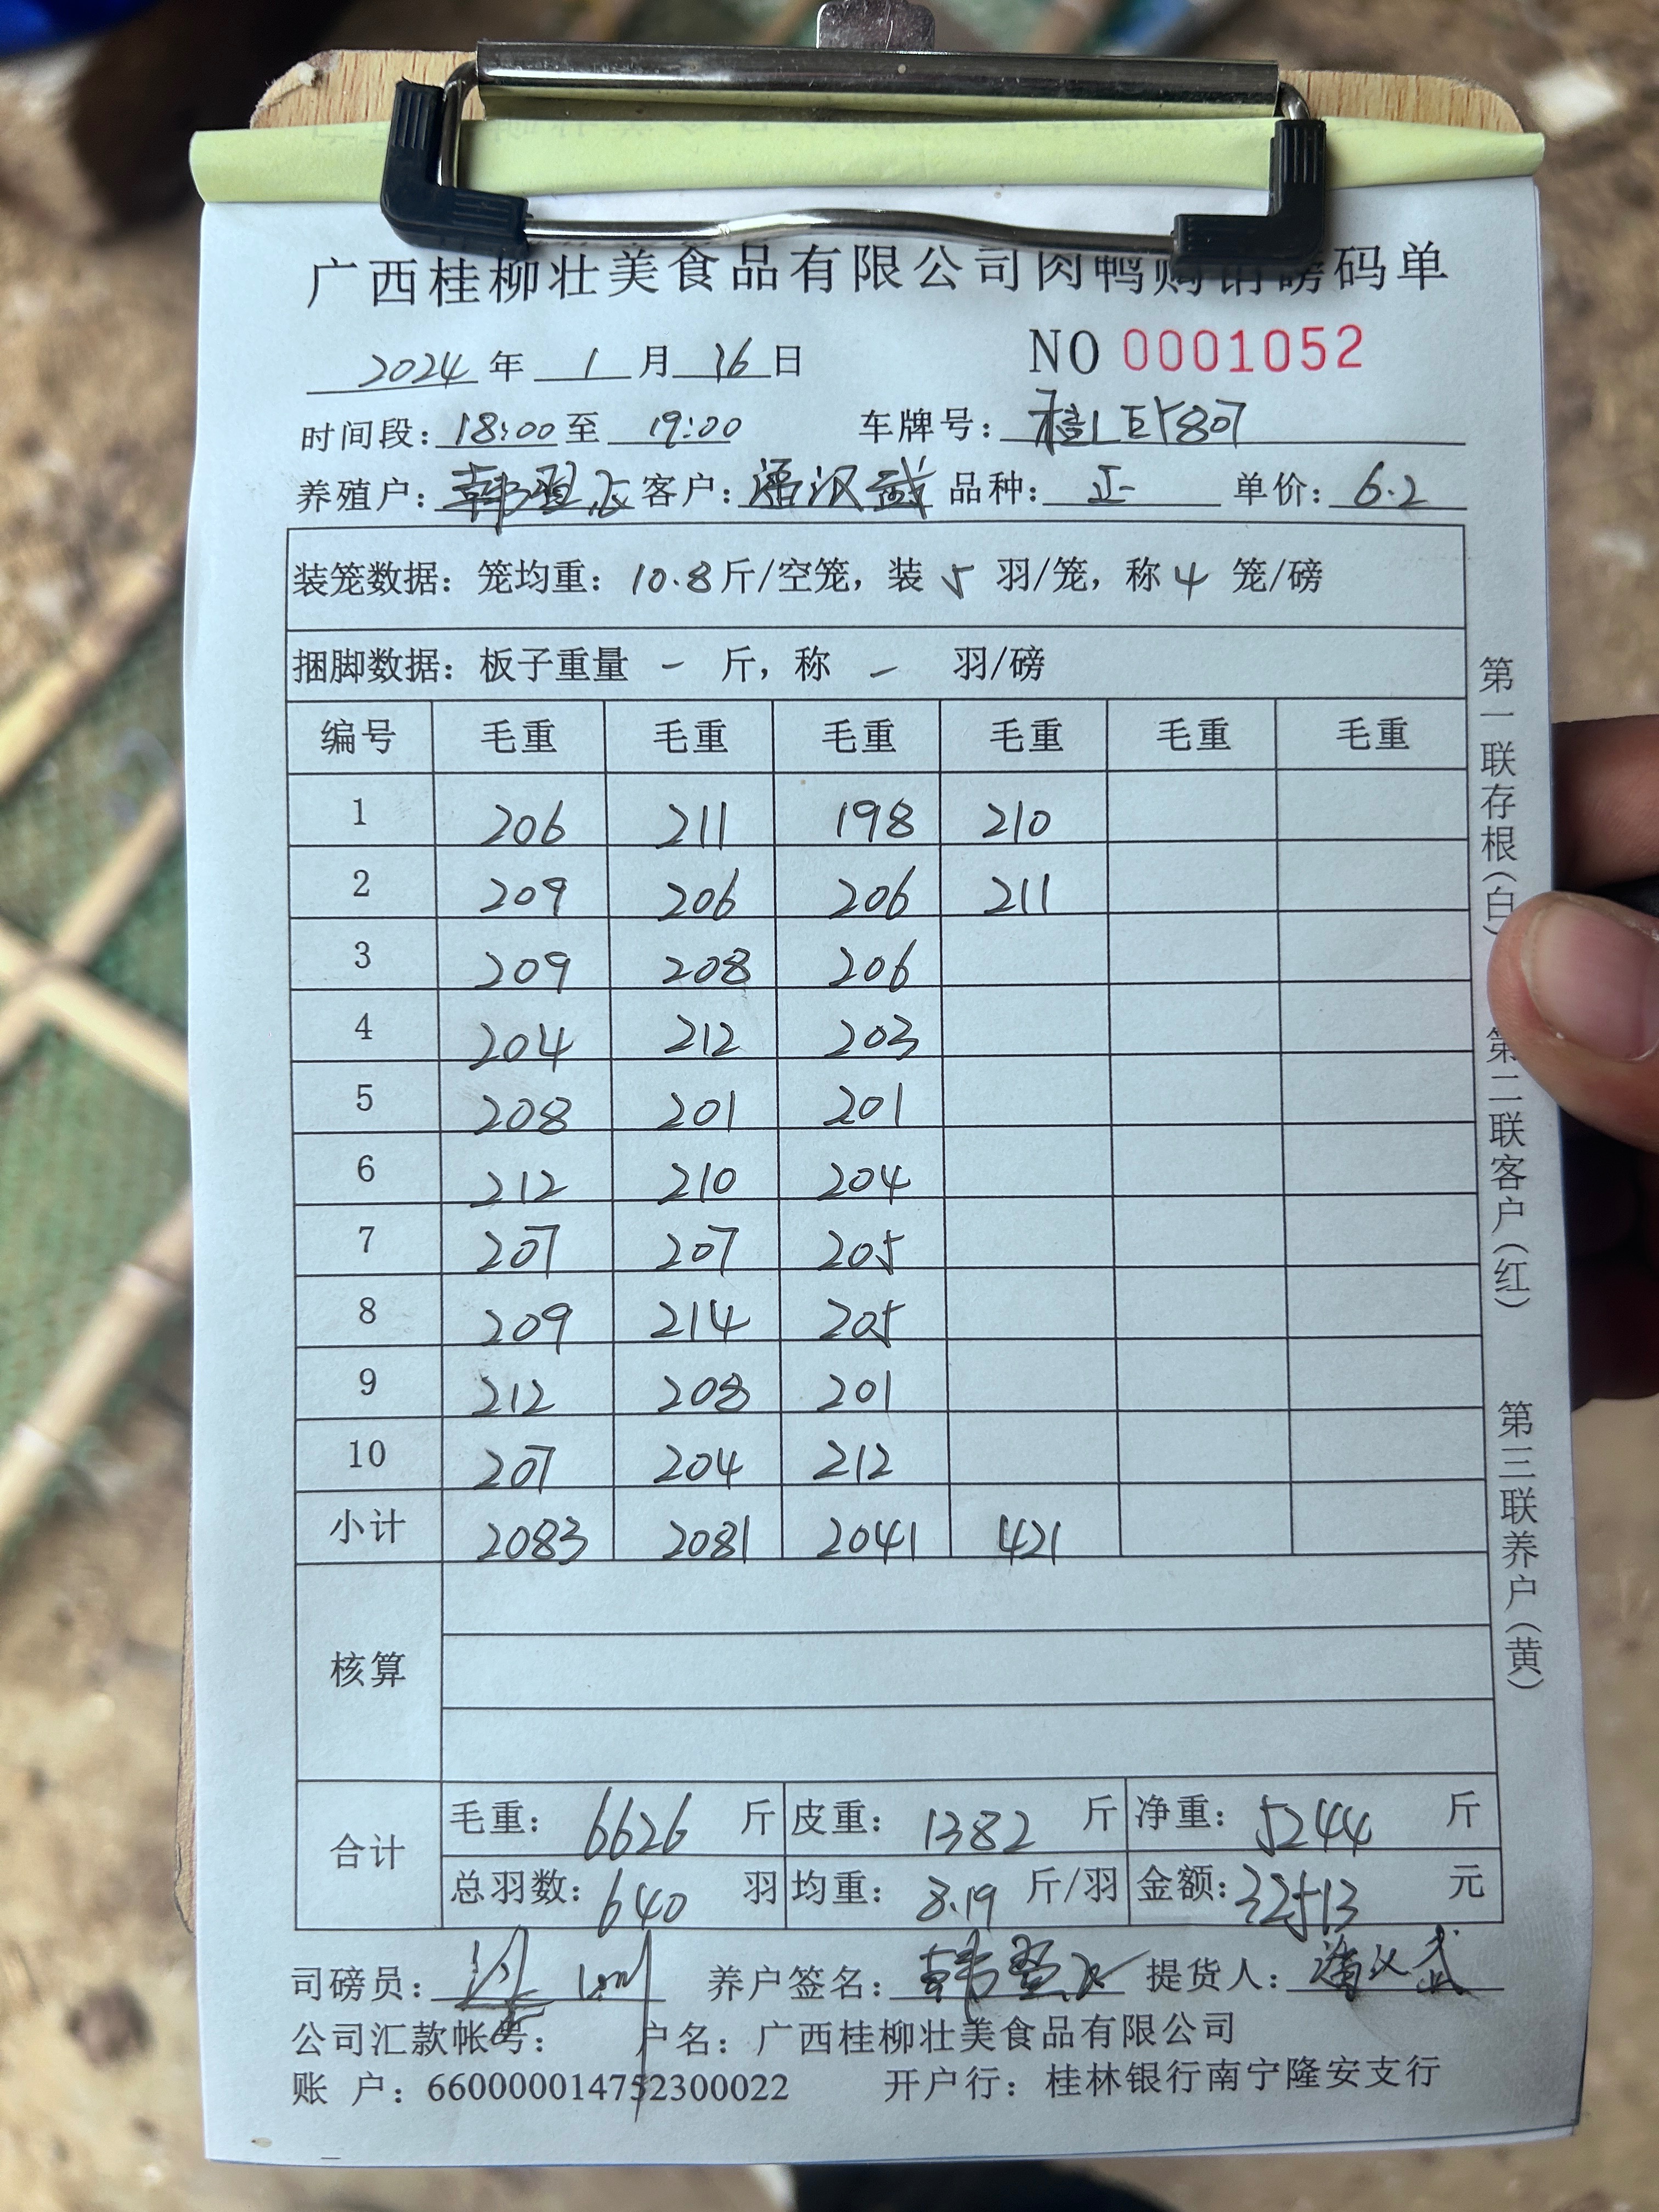 广西桂柳壮美食品有限公司肉鸭购销磅码单
2024年 1月 16日 NO 0001052
时间段：18:00至 19:00 车牌号：桂LEY807
养殖户： 客户： 汉武 品种：正 单价：6.2
装笼数据：笼均重：10.8斤/空笼，装 5 羽/笼，称 4 笼/磅
捆脚数据：板子重量 - 斤，称 - 羽/磅
编号 毛重 毛重 毛重 毛重 毛重 毛重
1 206 211 198 210
2 209 206 206 211
3 209 208 206
4 204 212 203
5 208 201 201
6 212 210 204
7 207 207 205
8 209 214 205
9 212 208 201
10 207 204 212
小计 2083 2081 2041 421
核算
合计 毛重：6626 斤 皮重：1382 斤 净重：5244 斤
总羽数：640 羽 均重：8.19 斤/羽 金额：32513 元
司磅员： 养户签名： 提货人：
公司汇款帐号： 户名：广西桂柳壮美食品有限公司
账 户：660000014752300022 开户行：桂林银行南宁隆安支行
第一联存根（白） 第二联客户（红） 第三联养户（黄）